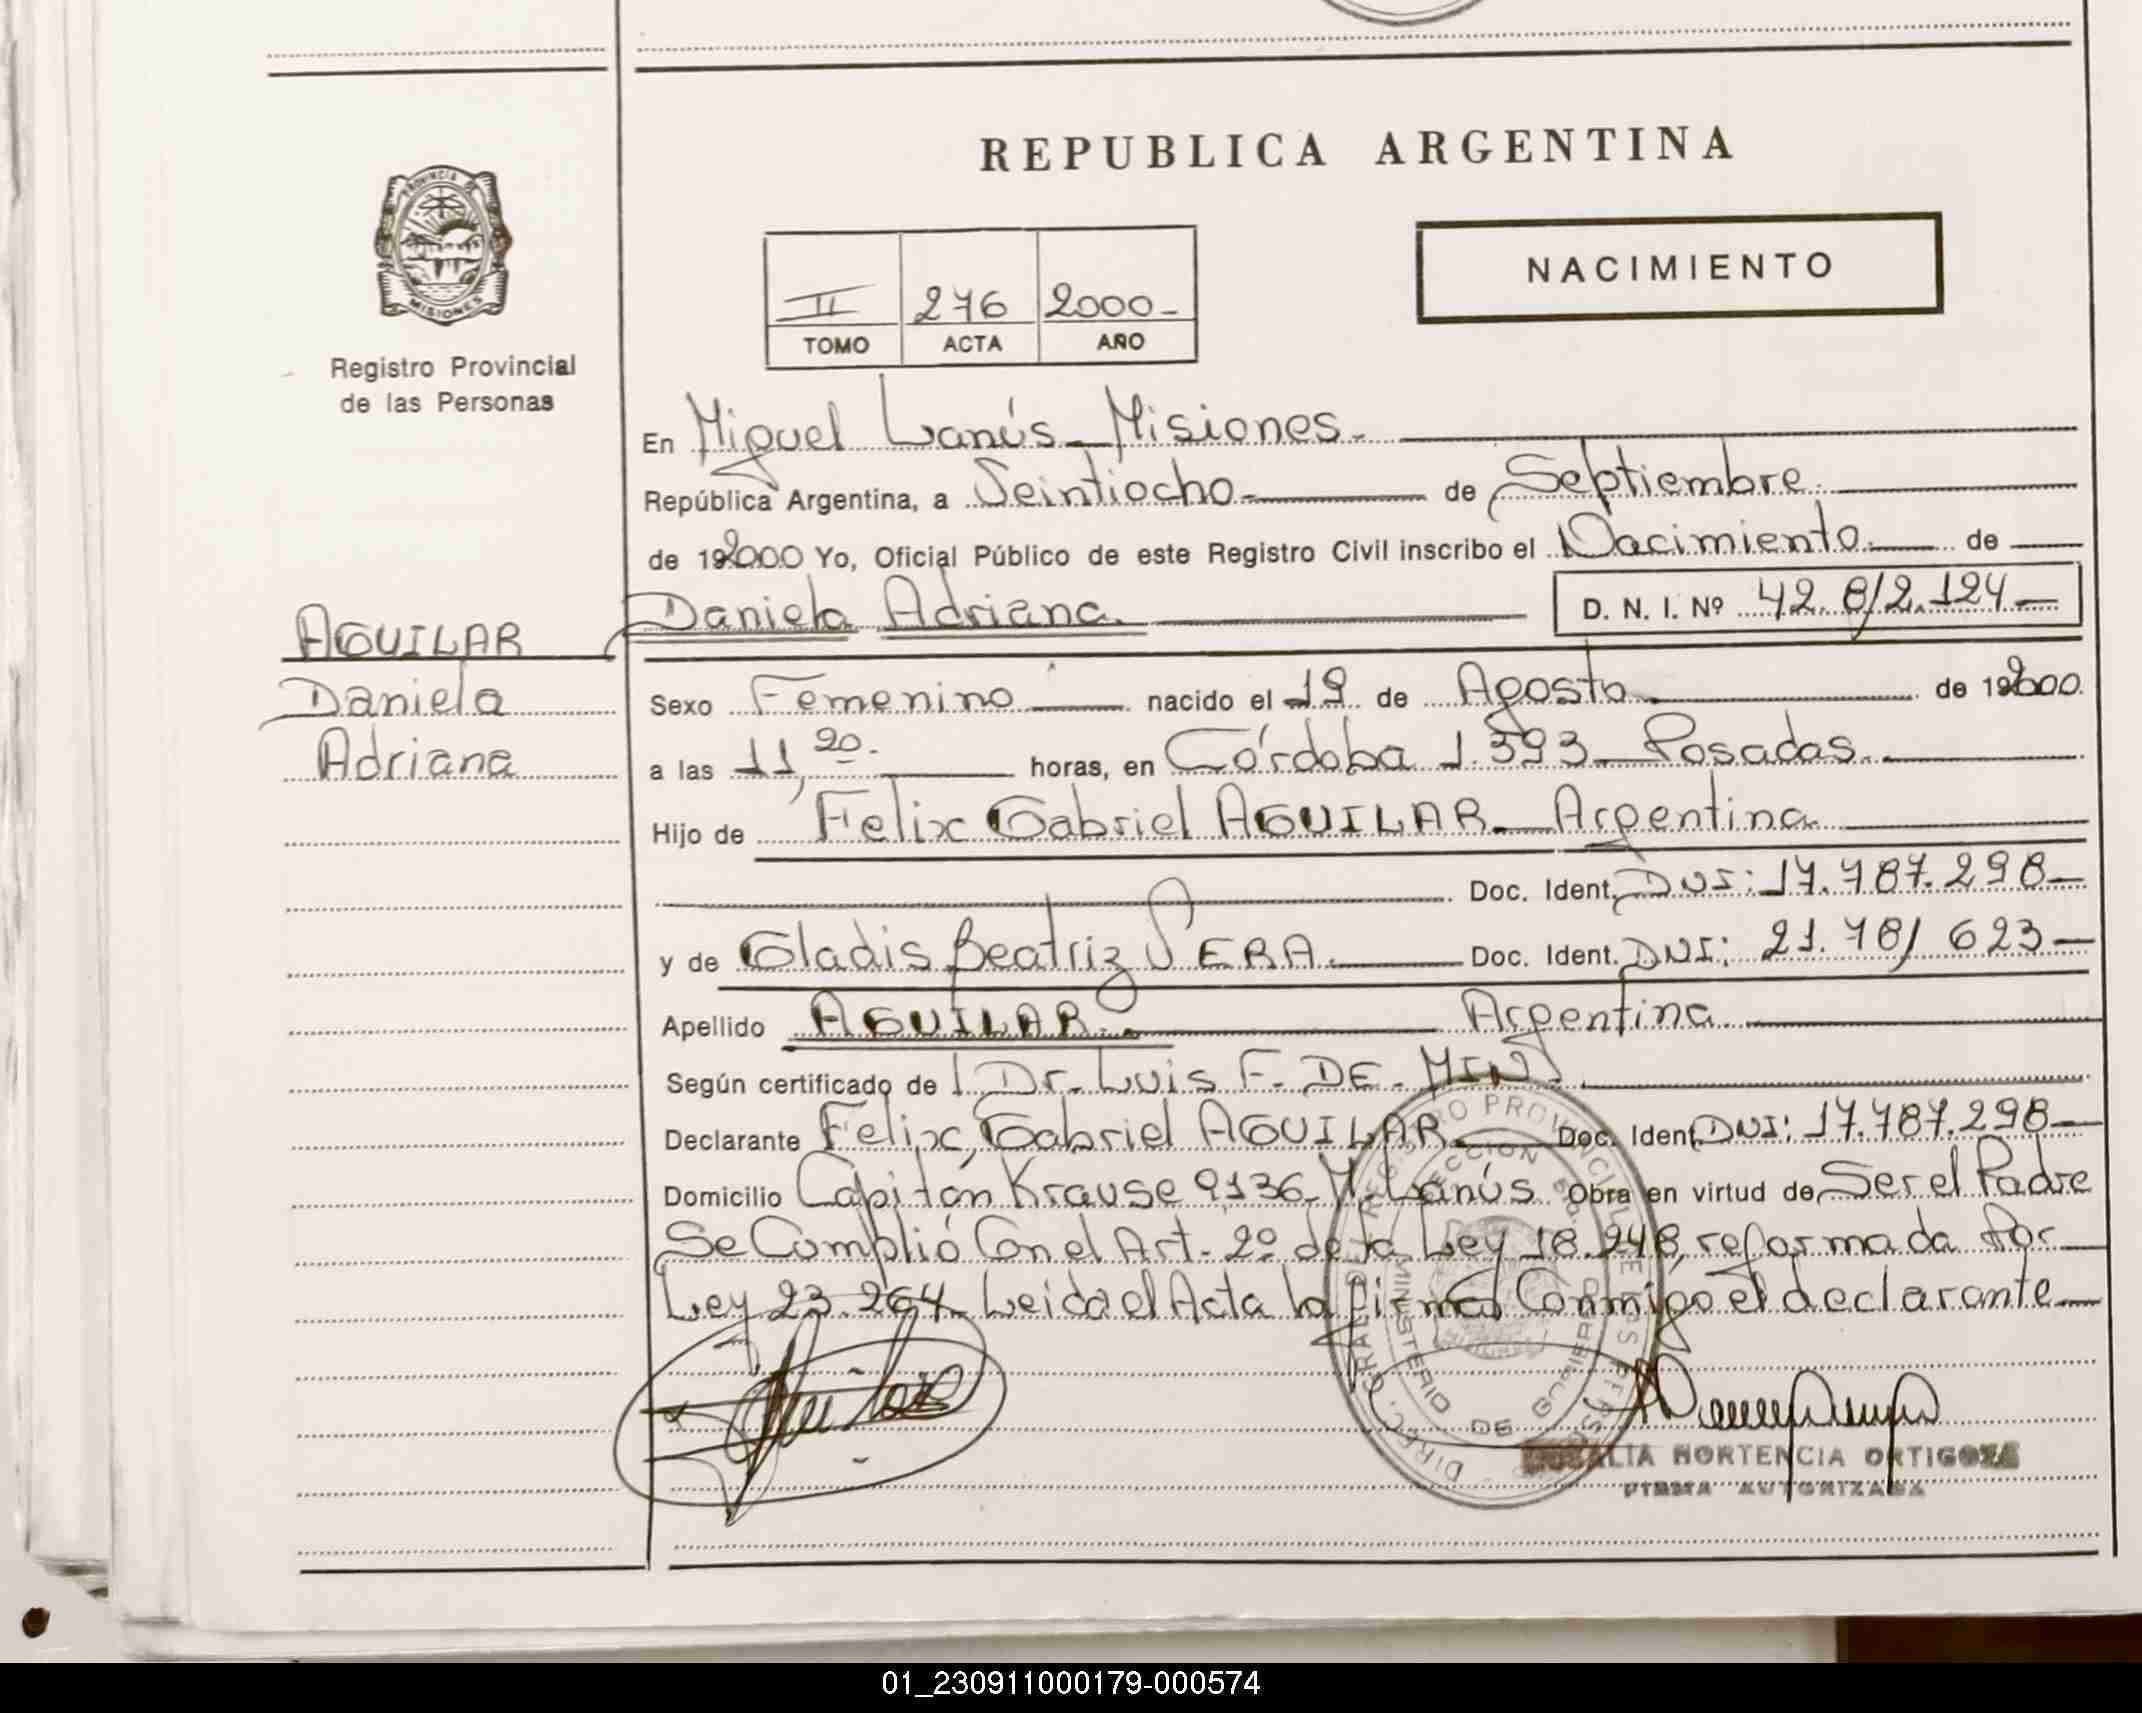 REPUBLICA ARGENTINA
PROVINCIA DE
MISIONES
Registro Provincial
de las Personas
NACIMIENTO
II 276 2000-
TOMO ACTA AÑO
En Miguel Lanús - Misiones.
República Argentina, a Veintiocho de Septiembre.
de 192000 Yo, Oficial Público de este Registro Civil inscribo el Nacimiento de
Daniela Adriana. D. N. I. Nº 42.812.124
AGUILAR
Daniela
Adriana
Sexo Femenino nacido el 19 de Agosto de 192000.
a las 11,20. horas, en Córdoba 1.393 - Posadas.
Hijo de Felix Gabriel AGUILAR - Argentina
Doc. Ident. DNI: 17.787.298
y de Gladis Beatriz VERA. Doc. Ident. DNI: 21.781 623
Apellido AGUILAR. Argentina.
Según certificado de Dr. Luis F. DE MIN.
Declarante Felix Gabriel AGUILAR Doc. Ident. DNI: 17.787.298
Domicilio Capitán Krause 9136 - M. Lanús Obra en virtud de Ser el Padre
Se Cumplió Con el Art. 2º de la Ley 18.248, reformada Por
Ley 23.264 - Leida el Acta la firma Conmigo el declarante
DIREC. GRAL. DEL REGISTRO PROVINCIAL DE LAS PERSONAS
MINISTERIO DE GOBIERNO
ROSALIA HORTENCIA ORTIGOZA
FIRMA AUTORIZADA
01_230911000179-000574